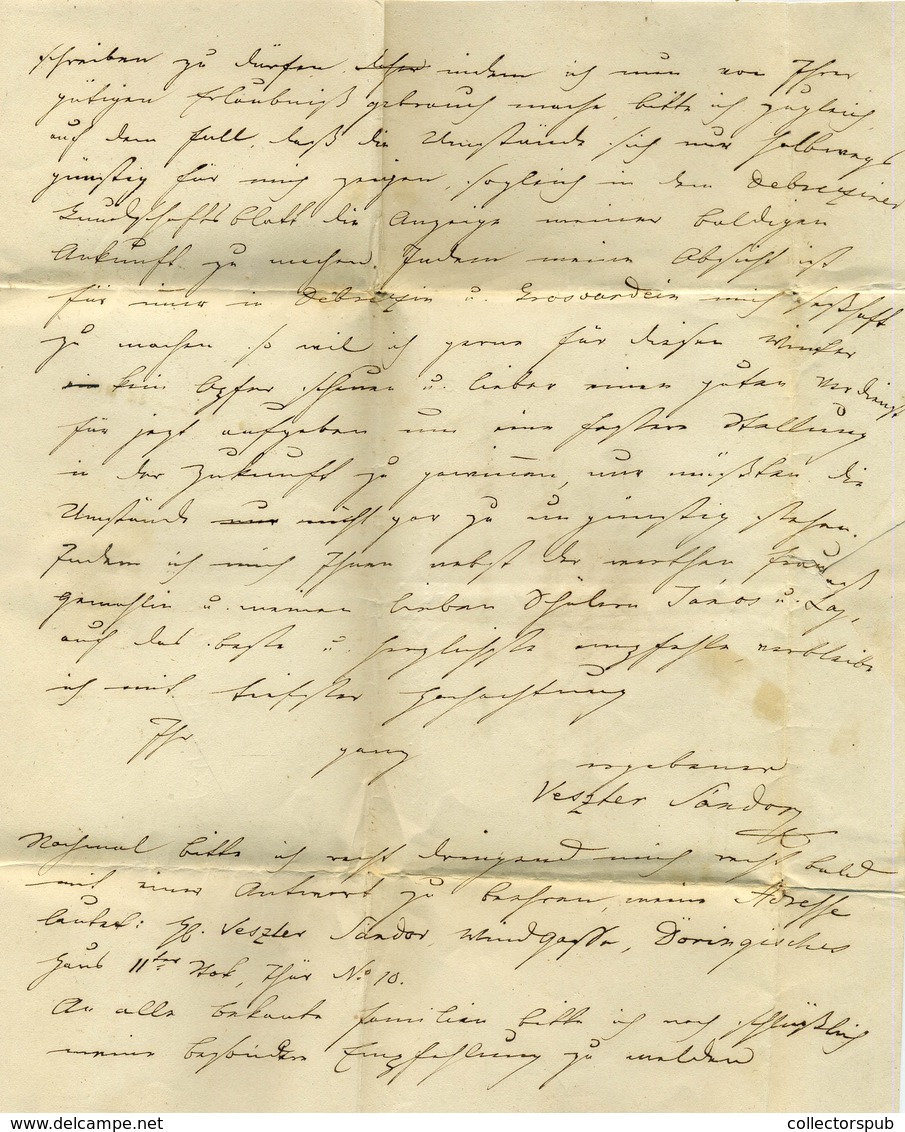 schreiben zu dürfen, indem ich nun von Ihrer
gütigen Erlaubniß gebrauch mache, bitte ich zugleich,
auf dem Fall, daß die Umstände sich nur halbwegs
günstig für mich zeigen, sogleich in dem Debrecziner
Kundschaftsblatt die Anzeige meiner baldigen
Ankunft zu machen. Indem meine Absicht ist
für imer in Debreczin u. Grosvardein mich seßhaft
zu machen so will ich gerne für diesen Winter
kein Opfer scheuen u. lieber einen guten Verdienst
für jezt aufgeben um eine festere Stellung
in der Zukunft zu gewinnen, nur müßten die
Umstände nicht gar zu ungünstig stehen.
Indem ich mich Ihnen nebst der werthen Frau
Gemahlin u. meinen lieben Schülern János u.
auf das beste u. herzlichste empfehle, verbleibe
ich mit tiefster Hochachtung
Ihr ganz ergebener
Veszter Sándor
Nochmal bitte ich recht dringend mich recht bald
mit einer Antwort zu beehren, meine Adresse
lautet: H. Veszter Sándor, Windgasse, Döringisches
Haus 11ter Stok, Thür No 10.
An alle bekante Familien bitte ich noch schlüßlich
meine besondere Empfehlung zu melden
collectorspub